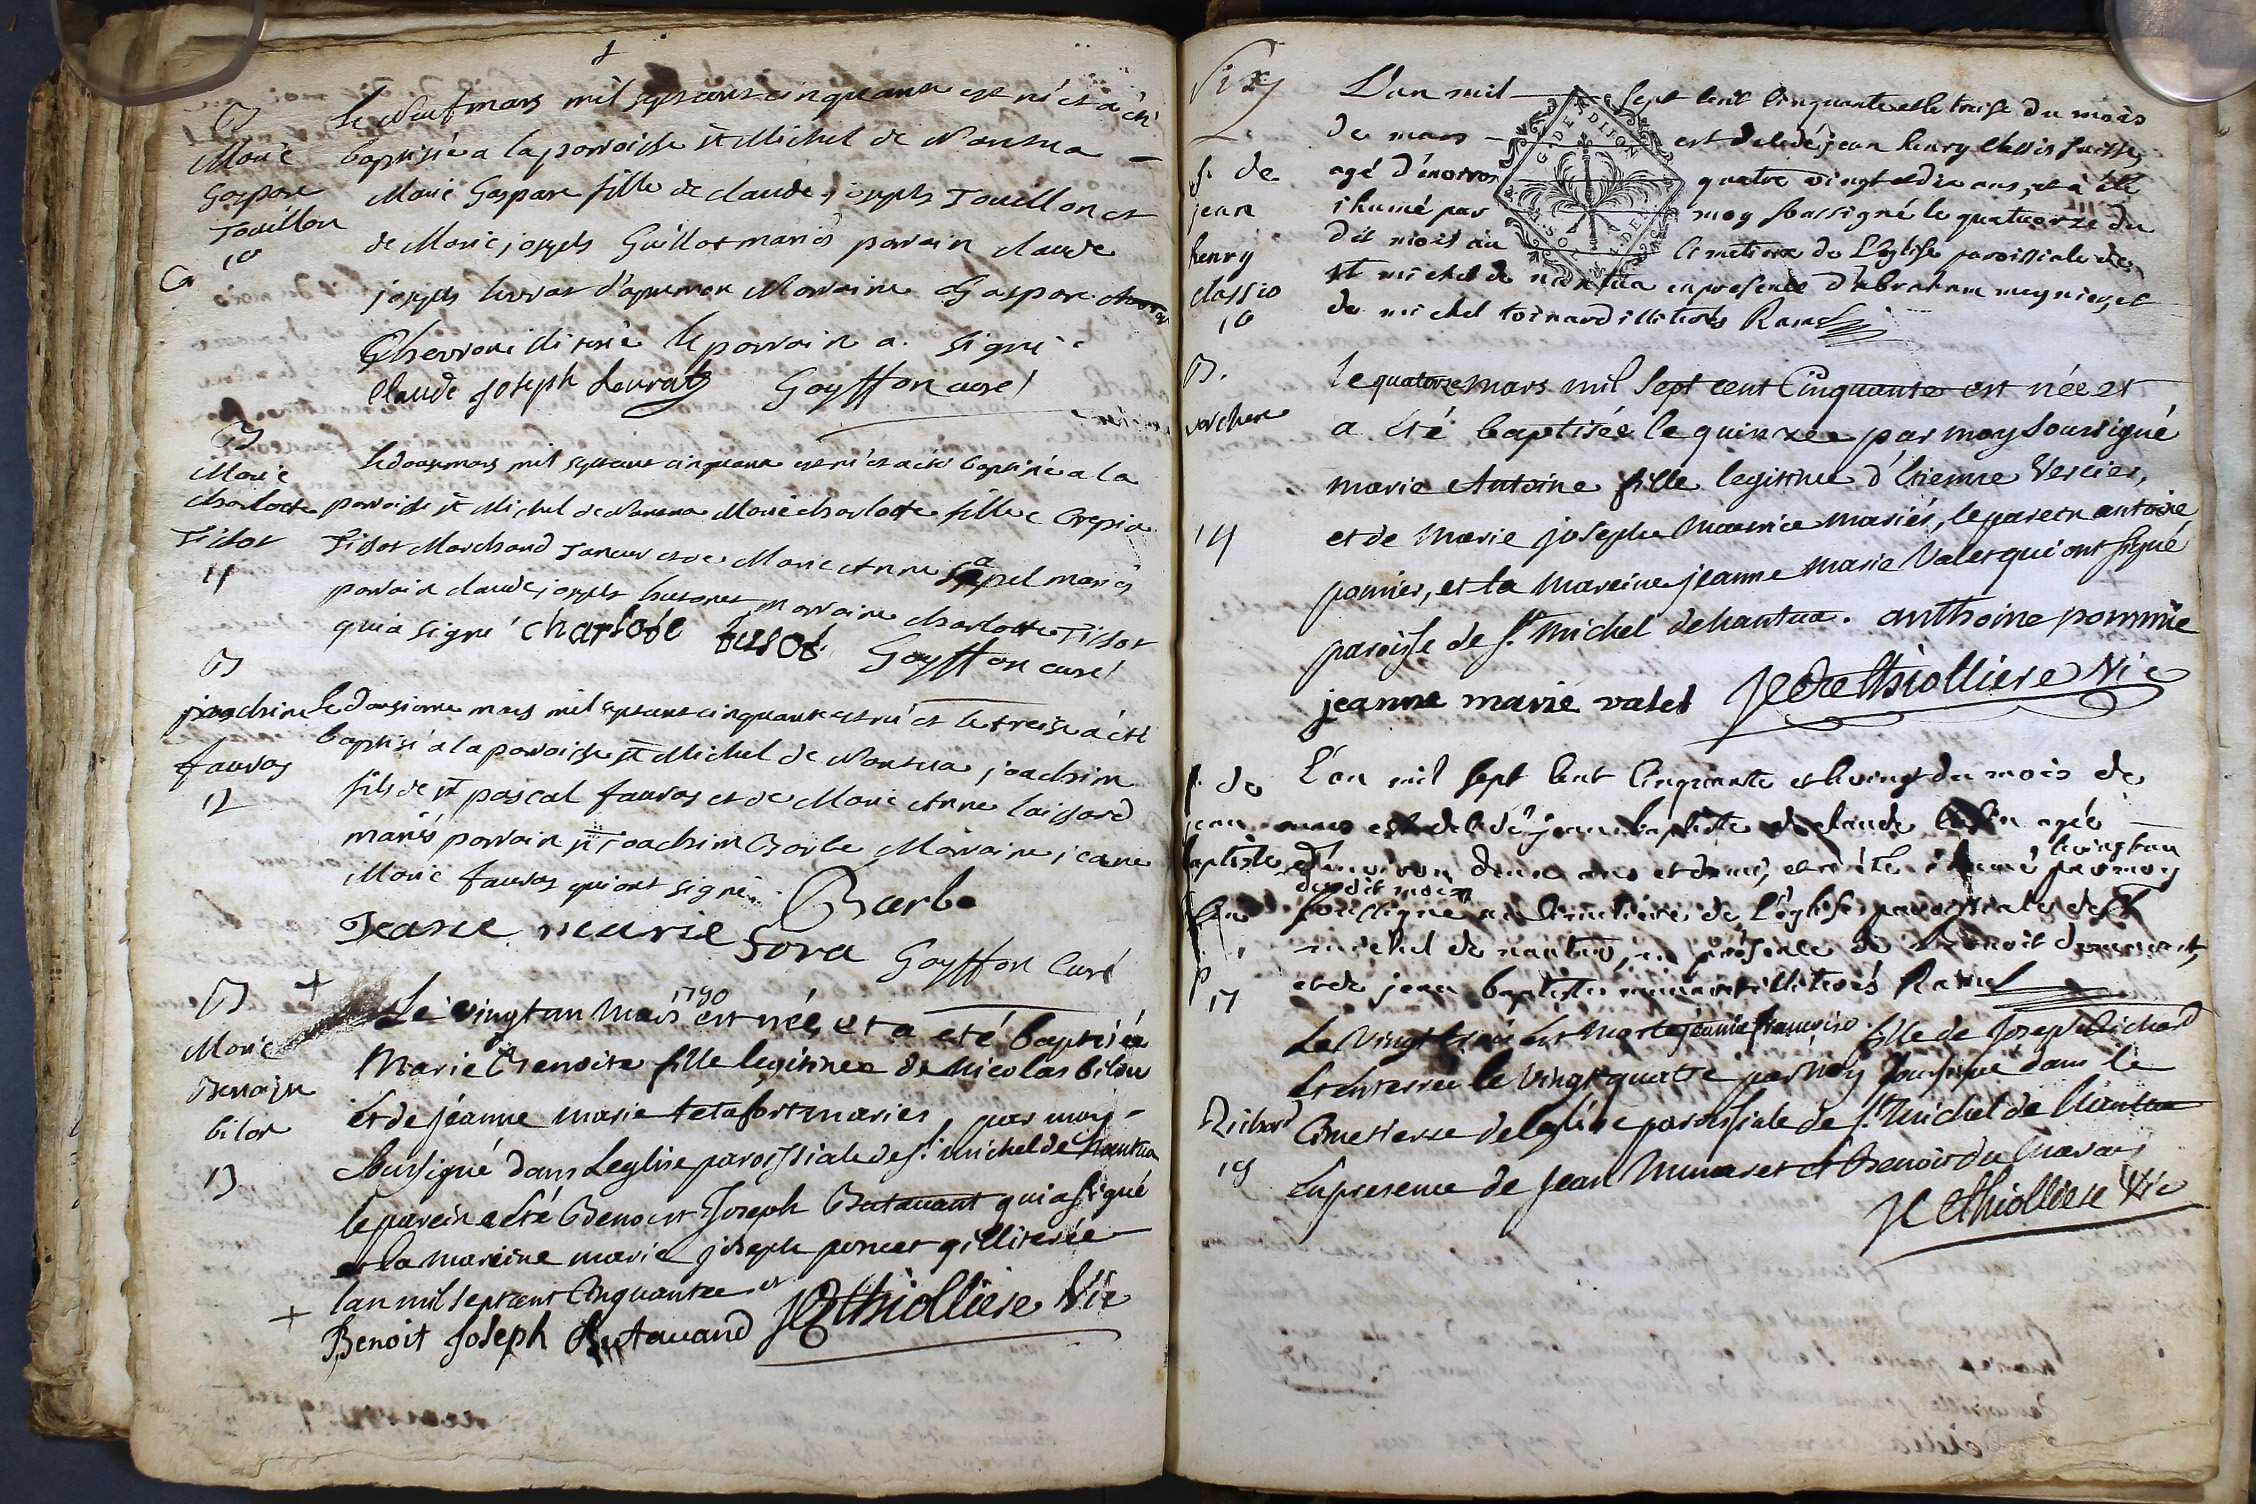 B
Marie
Gaspare
Touillon
10
Le neuf mars mil sept cent cinquante est né et a été
baptisée a la parroisse st Michel de Nantua
Marie Gaspare fille de claude joseph Touillon et
de Marie joseph Guillot mariés parrain claude
joseph levrat d'apremon Marraine Gaspare
le parrain a signé
Claude Joseph Levrat Goyffon curé
B
Marie
charlotte
Tissot
11
Le douze mars mil sept cent cinquante est né et a été baptisée a la
parroisse st Michel de Nantua Marie charlotte fille Crepin
Tissot Marchand Taneur et de Marie Anne mariés
parrain claude joseph marraine charlotte Tissot
qui a signé charlote tisot Goyffon curé
B
joachim
favras
12
Le douzieme mars mil sept cent cinquante est né et le treise a été
baptisé a la parroisse st Michel de Nantua joachim
fils de sr pascal favras et de Marie Anne
mariés parrain sr joachim Barbe Marraine jeane
Marie favras qui ont signé
Barbe
Jeane marie Fora Goyffon Curé
B
Marie
Benoite
bilon
13
Le vingt un Mars 1750 est née, et a été baptisée
Marie Benoite fille legitimee de Nicolas bilon
et de jéanne marie tetafort maries, par moy
soussigné dans Leglise paroissiale de st. michel de Nantua
le parein a été Benoist Joseph Butavant qui a signé
et la mareine marie joseph poncet illiterée
lan mil sept cent Cinquante
Benoit Joseph Butavand Jethiolliere Vic
Six
s. de
jean
henry
classis
10
L'an mil sept cent Cinquante et le traise du mois
de mars est decedé jean henry classis suisse,
agé d'environ quatre vingt et dix ans, et a été
ihumé par moy soussigné le quatorze du
dit mois au Cimetiere de L'eglise paroissiale de
st michel de nantua en presence d'abraham meynier, et
de michel toinard illiterés Ramel
G. DE DIJON
B.
vercher
14
le quatorze mars mil sept cent Cinquante est née et
a été baptisée le quinzee par moy soussigné
marie Antoine fille legitime d'Etienne Vercier,
et de Marie josephe Maurice mariés, le parein antoine
pomier, et la mareine jeanne marie Valet qui ont signé
paroisse de st. Michel de nantua. anthoine pommie
jeanne marie valet Jethiolliere Vic
s. de
jean
baptiste
17
L'an mil sept cent Cinquante et le vingt du mois de
mars est decedé jean baptiste de claude agé
d'environ deux ans et demi, et a été ihumé le vingt un par moy
du dit mois
soussigné au Cimetiere de L'eglise paroissiale de st
michel de nantua, en presence de Benoit
et de jean baptiste illiterés Ramel
Richard
19
Le Vingt trois est Morte jeanne françoise fille de Joseph Richard
et enterrée le Vingt quatre par Moy Soussigné dans le
Cimetierre de leglise paroissiale de st. Michel de Nantua
En presence de Jean Munaret et Benoit du Marans
Jethiolliere Vic